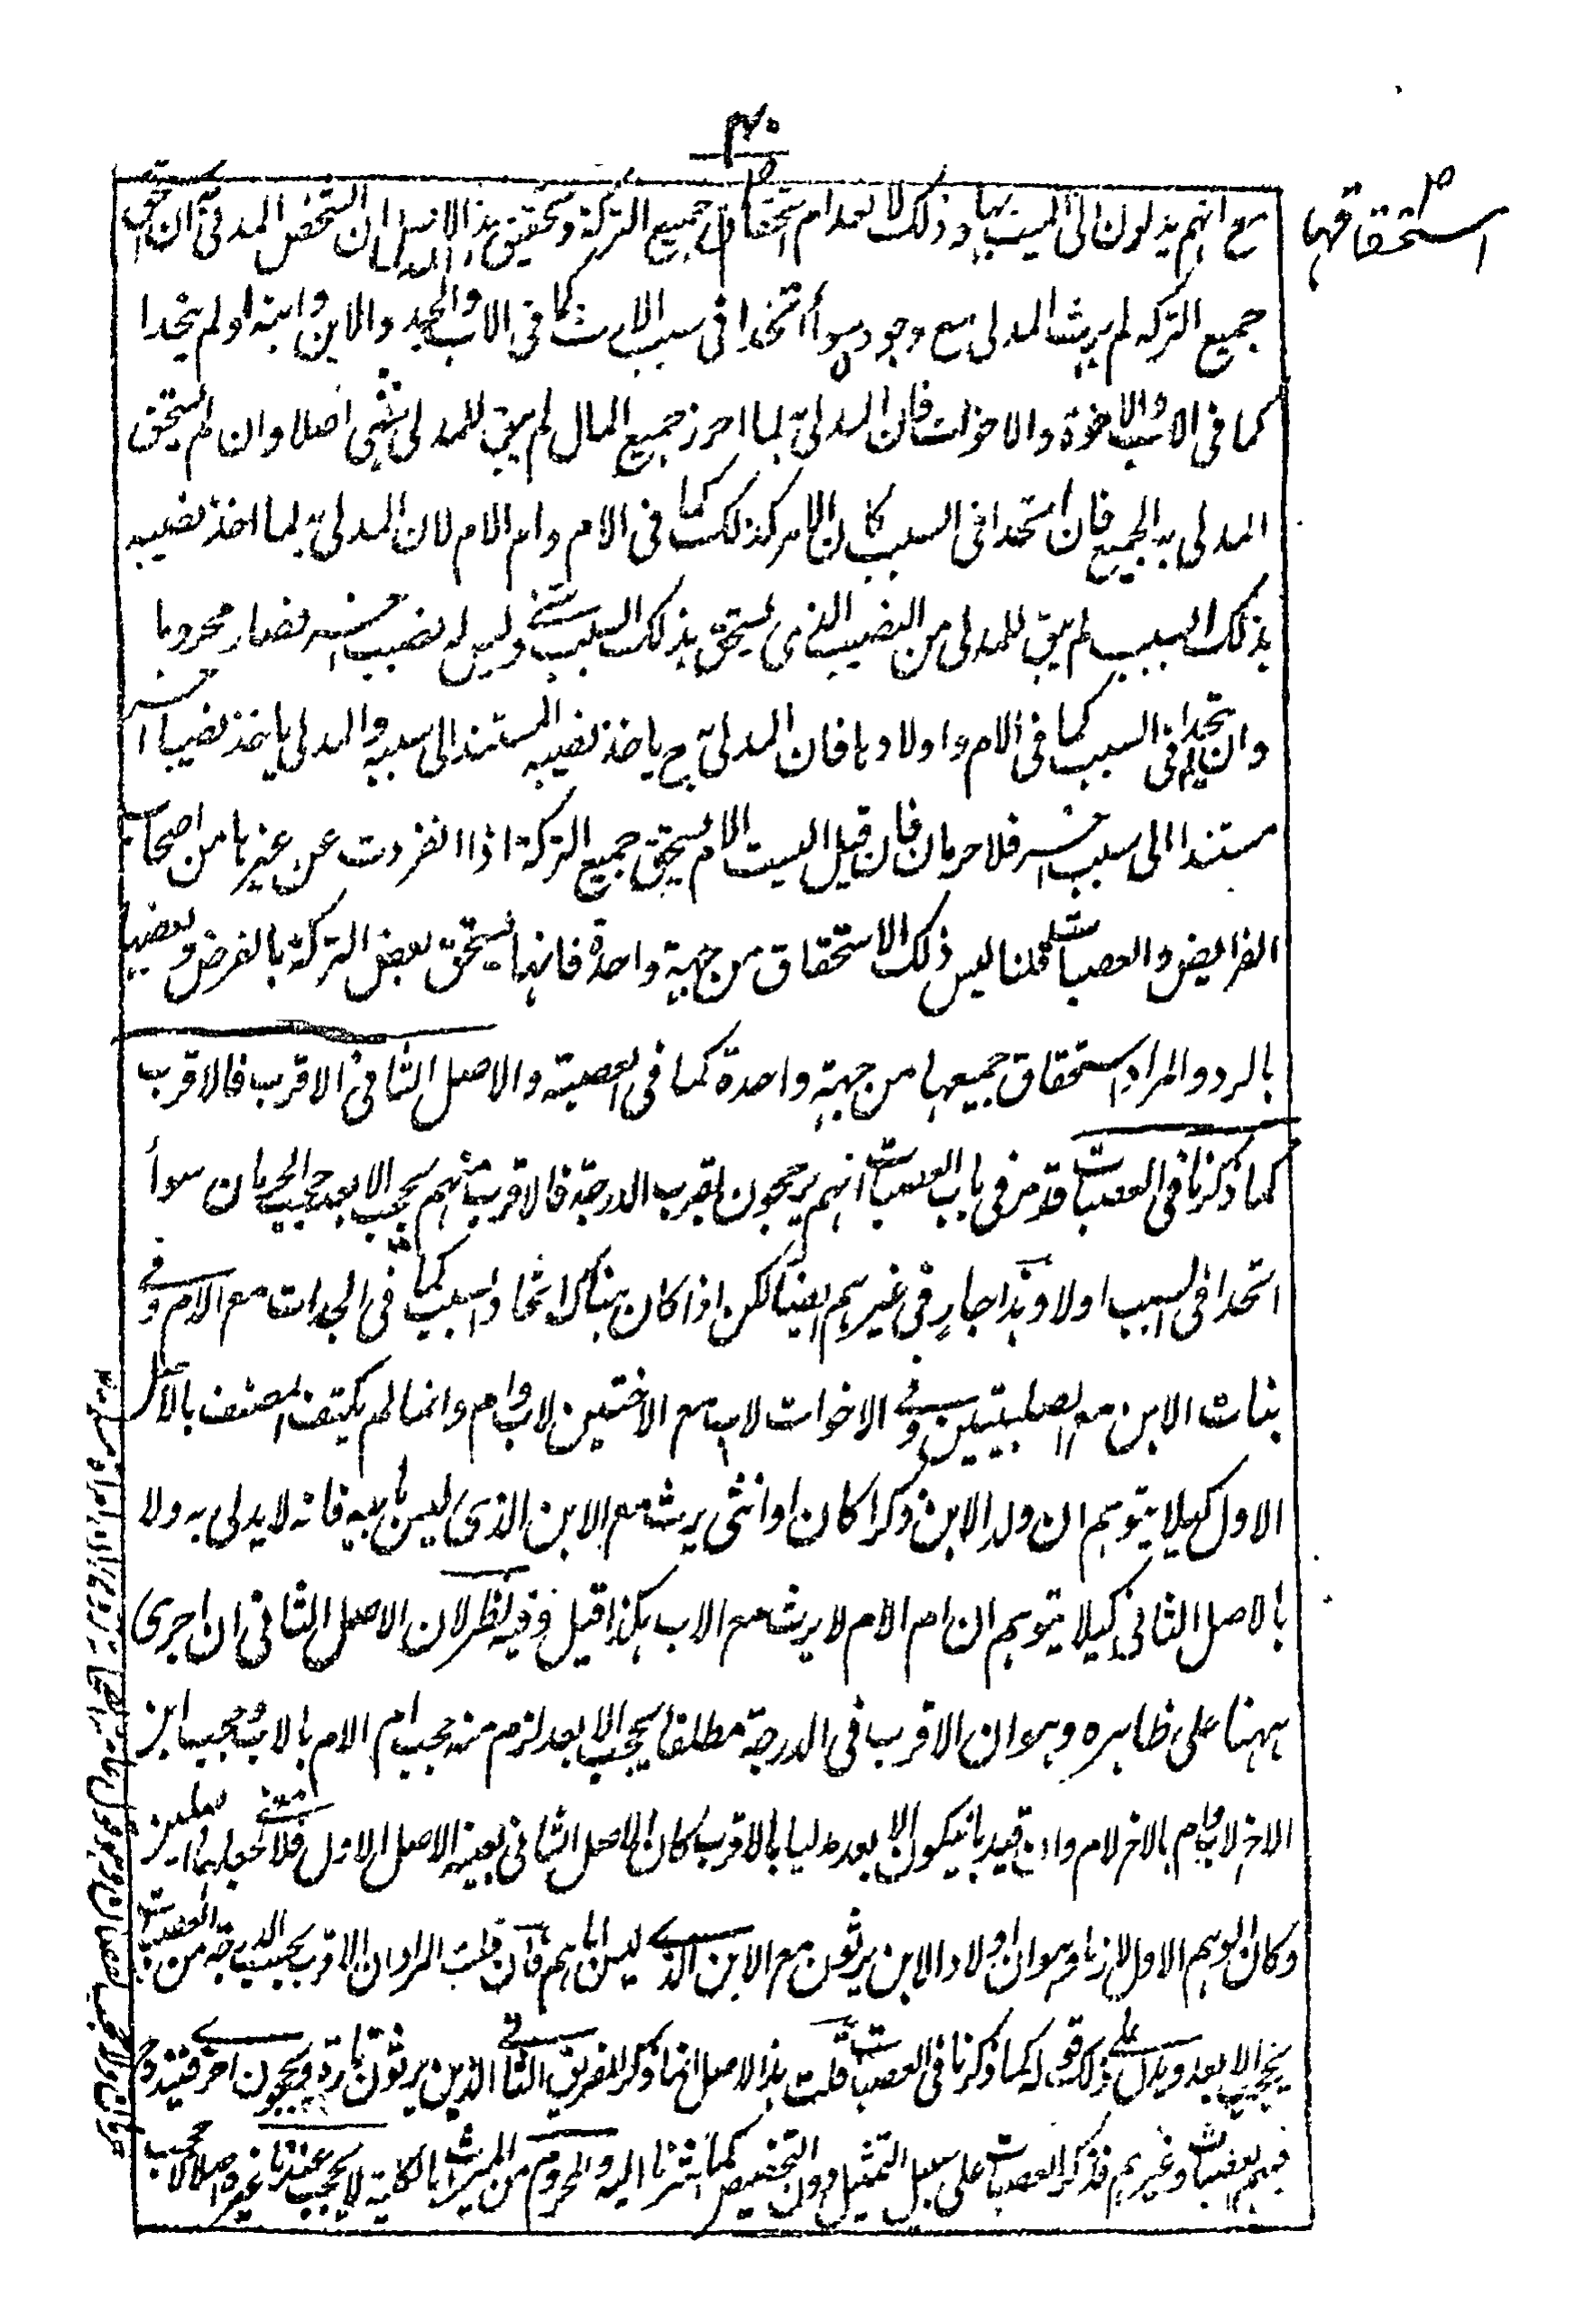 ٣٠
استحقاقها
مع انهم يدلون الى الميت بها وذلك لانعدام استحقاق جميع التركة وتحقيق هذا الاصل ان الشخص المدلى به ان استحق
جميع التركة لم يرث المدلى مع وجوده سواء اتحدا فى سبب الارث كما فى الاب والجد والابن وابنه او لم يتحدا
كما فى الاب والاخوة والاخوات فان المدلى به لما احرز جميع المال لم يبق للمدلى شىء اصلا وان لم يستحق
المدلى به الجميع فان اتحدا فى السبب كان الامر كذلك كما فى الام وام الام لان المدلى به لما اخذ نصيبه
بذلك السبب لم يبق للمدلى من النصيب الذى يستحق بذلك السبب شئ وليس له نصيب اخر فصار محروما
وان لم يتحدا فى السبب كما فى الام واولادها فان المدلى به ح ياخذ نصيبه المستند الى سببه والمدلى ياخذ نصيبا اخر
مستندا الى سبب اخر فلا حرمان فان قيل اليست الام يستحق جميع التركة اذا انفردت عن غيرها من اصحاب
الفرايض والعصبات قلنا ليس ذلك الاستحقاق من جهة واحدة فانها يستحق بعض التركة بالفرض وبعضها
بالرد والمراد استحقاق جميعها من جهة واحدة كما فى العصبة والاصل الثانى الاقرب فالاقرب
كما ذكرنا فى العصبات قد مر فى باب العصبات انهم يرجحون بقرب الدرجة فالاقرب منهم يحجب الابعد حجب الحرمان سواء
اتحدا فى السبب او لا وهذا جار فى غيرهم ايضا لكن اذا كان هناك اتحاد السبب كما فى الجدات مع الام وفى
بنات الابن مع الصلبيتين وفى الاخوات لاب مع الاختين لاب وام وانما لم يكتف المصنف بالاصل
الاول كيلا يتوهم ان ولد الابن ذكرا كان او انثى يرث مع الابن الذى ليس بابيه فانه لا يدلى به ولا
بالاصل الثانى كيلا يتوهم ان ام الام لا يرث مع الاب هكذا قيل وفيه نظر لان الاصل الثانى ان اجرى
ههنا على ظاهره وهو ان الاقرب فى الدرجة مطلقا يحجب الابعد لزم منه حجب ام الام بالاب وحجب ابن
الاخ لاب وام بالاخ لام وان قيد بان يكون الابعد مدليا بالاقرب كان الاصل الثانى بعينه الاصل الاول فلا معنى لجعلهما اصلين
وكان الوهم الاول لازما وهو ان اولاد الابن يرثون مع الابن الذى ليس اباهم فان قلت المراد ان الاقرب بحسب الدرجة من العصبات
يحجب الابعد ويدل على ذلك قوله كما ذكرنا فى العصبات قلت هذا الاصل انما ذكر للفريق الثانى الذين يرثون تارة ويحجبون اخرى فيندرج
فيهم العصبات وغيرهم فذكر العصبات على سبيل التمثيل دون التخصيص كما اشرنا اليه والمحروم من الميراث بالكلية لا يحجب عندنا غيره اصلا لا حجب